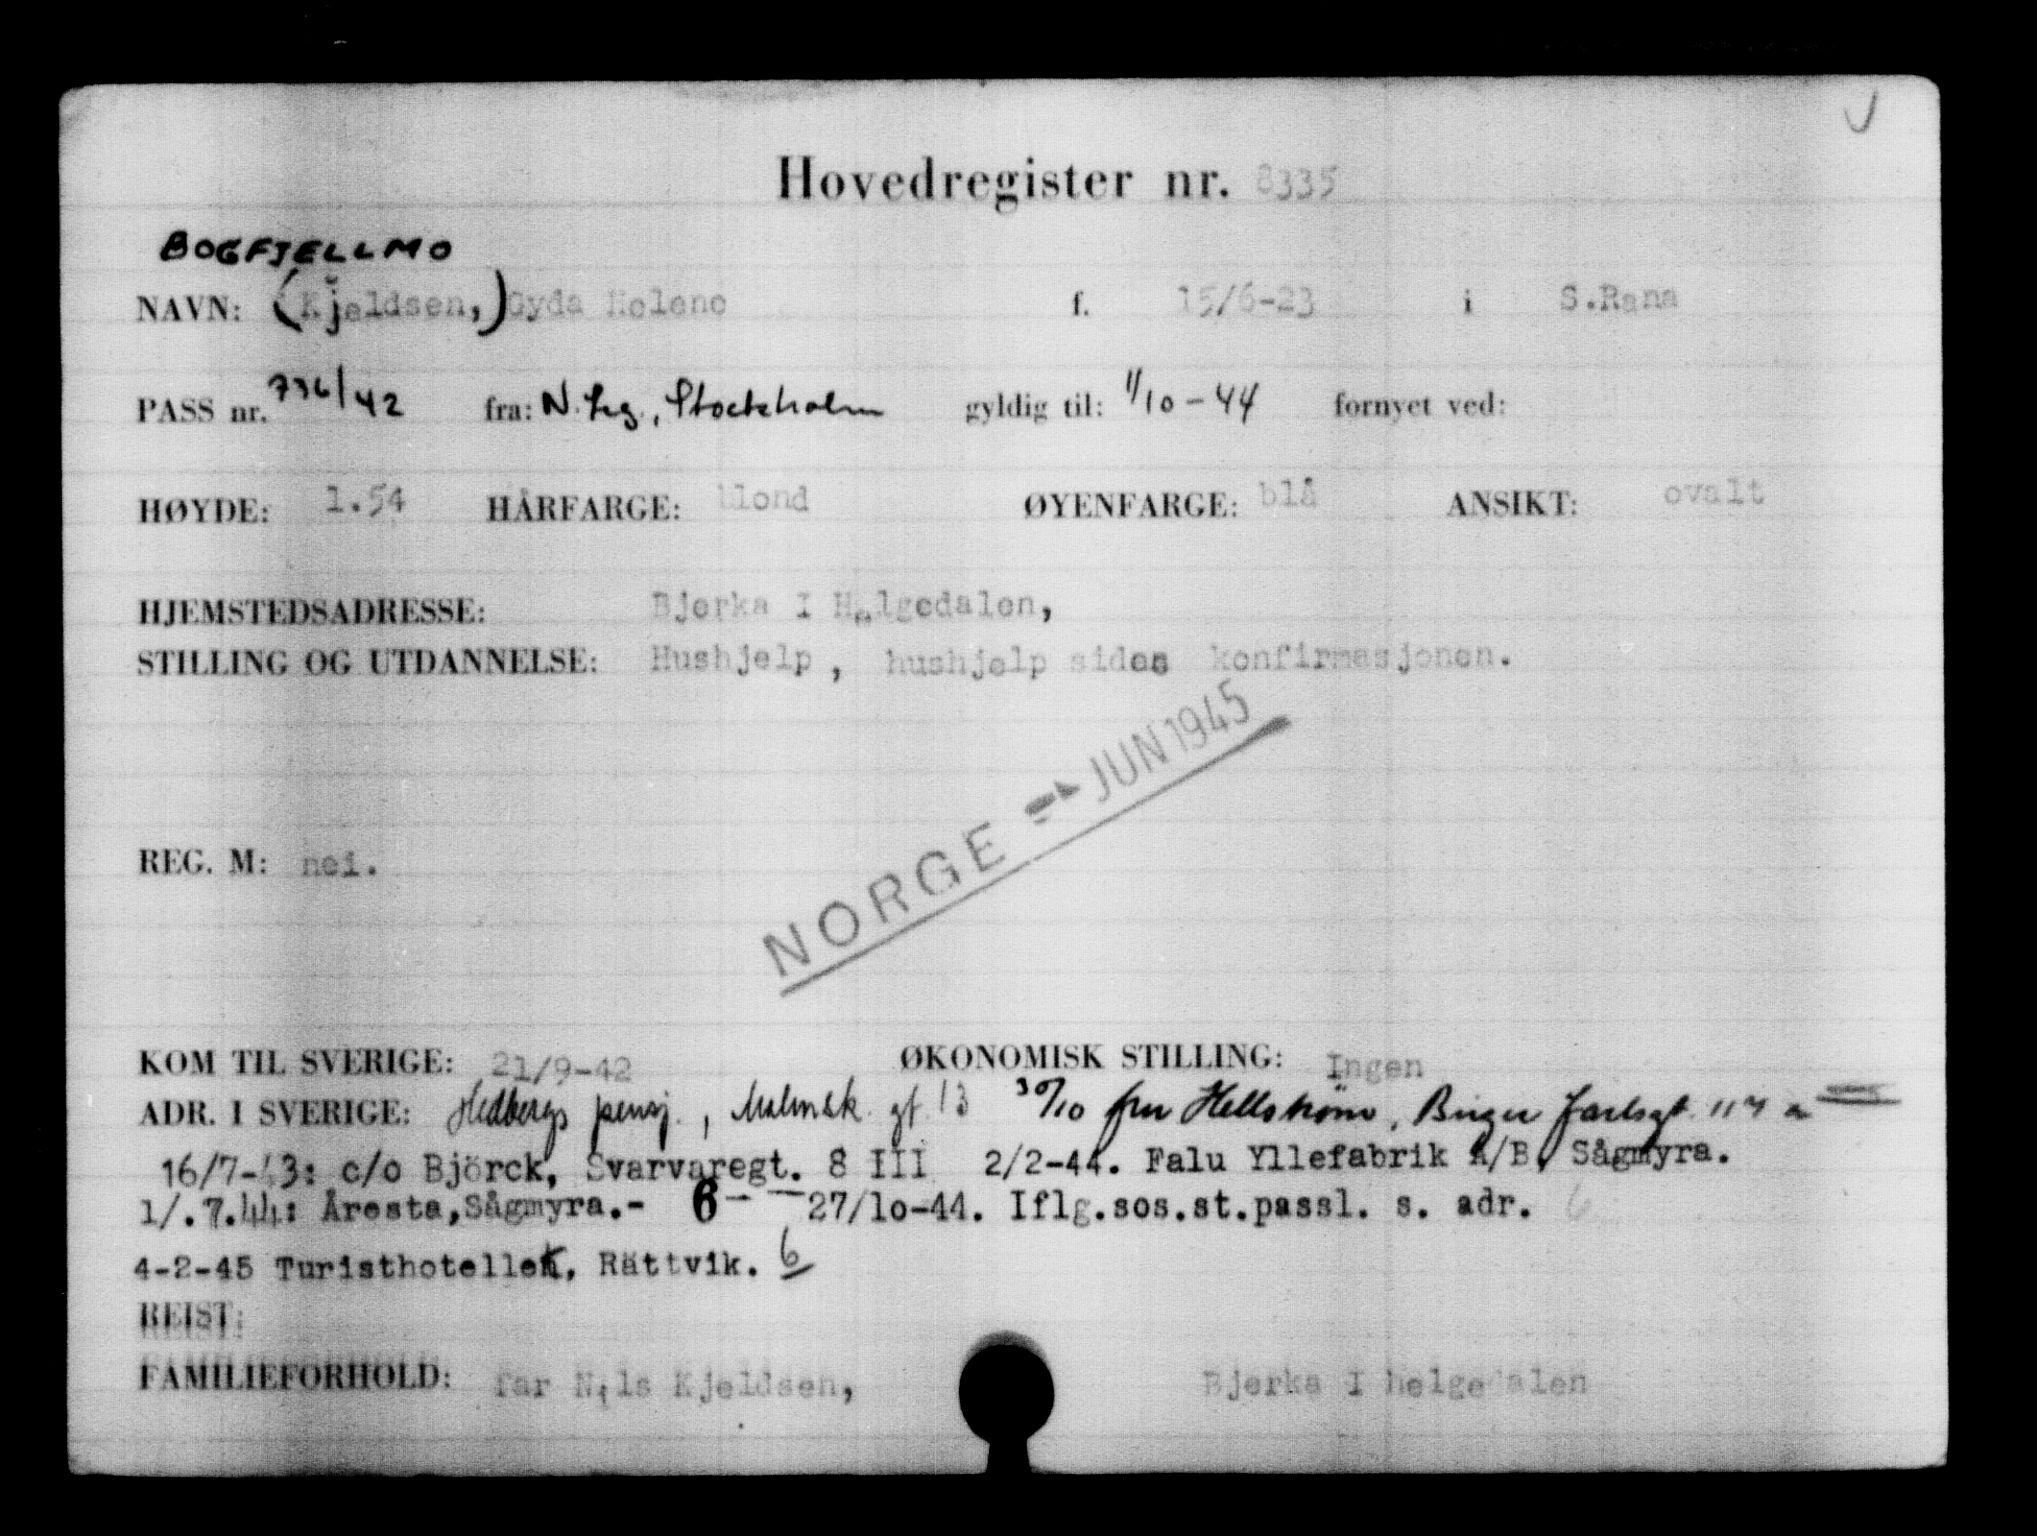 Hovedregister nr. 8335
BOGFJELLMO
NAVN: (Kjeldsen,) Gyda Helene f. 15/6-23 i S.Rana
PASS nr. 736/42 fra: N. Leg., Stockholm gyldig til: 1/10-44 fornyet ved:
HØYDE: 1.54 HÅRFARGE: blond ØYENFARGE: blå ANSIKT: ovalt
HJEMSTEDSADRESSE: Bjerka I Helgedalen,
STILLING OG UTDANNELSE: Hushjelp, hushjelp siden konfirmasjonen.
NORGE JUN 1945
REG. M: nei.
KOM TIL SVERIGE: 21/9-42 ØKONOMISK STILLING: Ingen
ADR. I SVERIGE: Hedbergs pensj., Malmsk. gt 13 30/10 fru Hellstrøm, Birger Jarlsgt.
16/7-43: c/o Björck, Svarvaregt. 8 III 2/2-44. Falu Yllefabrik A/B, Sågmyra.
1/.7.44: Åresta,Sågmyra.- 6 - - 27/10-44. Iflg.sos.st.passl. s. adr. 6
4-2-45 Turisthotellet, Rättvik. 6
REIST:
FAMILIEFORHOLD: far Nils Kjeldsen, Bjerka I helgedalen